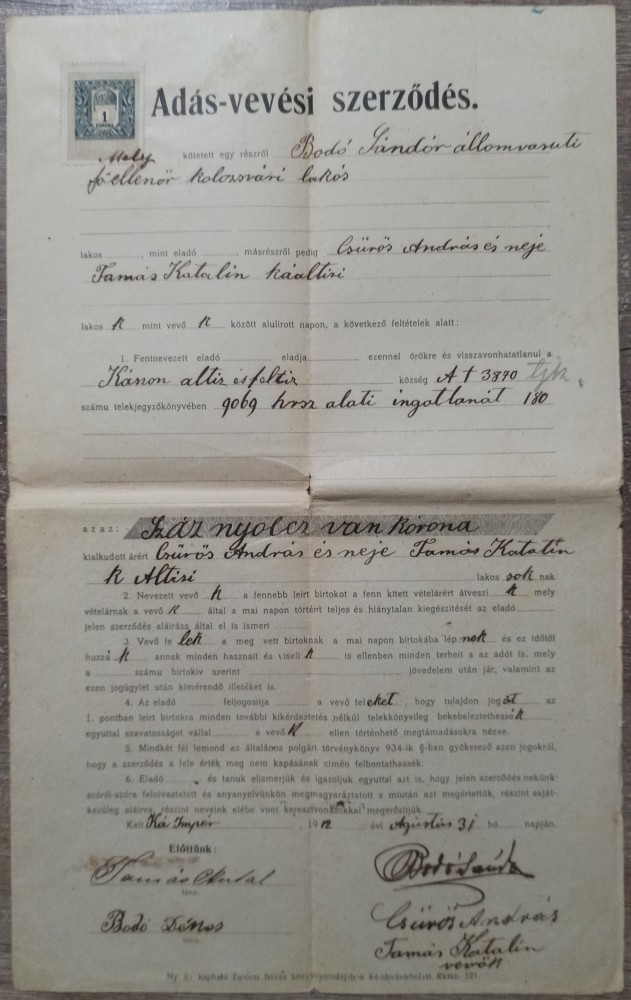 1
Adás-vevési szerződés.
Mely kötetett egy részről Bodó Sándór államvasuti
főellenőr kolozsvári lakós
lakos , mint eladó , másrészről pedig Csürös András és neje
Tamás Katalin káaltisi
lakos k mint vevő k között alulirott napon, a következő feltételek alatt:
1. Fentnevezett eladó eladja ezennel örökre és visszavonhatatlanul a
Kászon altiz és feltiz község A † 3840 tjk.
számu telekjegyzőkönyvében 9069 hrsz alati ingatlanát 180
azaz: Száz nyolcz van korona
kialkudott árért Csürös András és neje Tamás Katalin
k Altisi lakos sok nak
2. Nevezett vevő k a fennebb leirt birtokot a fenn kitett vételárért átveszi k mely
vételárnak a vevő k által a mai napon történt teljes és hiánytalan kiegészitését az eladó
jelen szerződés aláirása által el is ismeri
3. Vevő fe lek a meg vett birtoknak a mai napon birtokába lép nek és ez időtől
huzzá k annak minden hasznait és viseli k is ellenben minden terheit s az adót is, mely
a számu birtokiv szerint jövedelem után jár, valamint az
ezen jogügylet után kimérendő illetéket is.
4. Az eladó feljogositja a vevő feleket, hogy tulajdon jogát az
1. pontban leirt birtokra minden további kikérdeztetés nélkül telekkönyvileg bekebeleztethessék
egyuttal szavatosságot vállal a vevő k ellen történhető megtámadásokra nézve.
5. Mindkét fél lemond az általános polgári törvénykönyv 934-ik §-ban gyökerező azon jogokról,
hogy a szerződés a fele érték meg nem kapásának cimén felbontathassék.
6. Eladó és tanuk elismerjük és igazoljuk egyuttal azt is, hogy jelen szerződés nekünk
szóról-szóra felolvastatott és anyanyelvünkön megmagyaráztatott s miután azt megértettük, részint saját-
kezüleg aláirva, részint neveink elébe vont keresztvonásokkal megerősitjük.
Kelt Ká Impér 1912 évi Agustus 31 hó napján.
Előttünk:
Tamás Antal
tanu.
Bodó Dénes
tanu.
Bodó Sándor
Csürös András
Tamás Katalin
vevők
Ny. és kapható Turóczi István könyvnyomdájában Kézdivásárhelyn. Rktsz. 121.